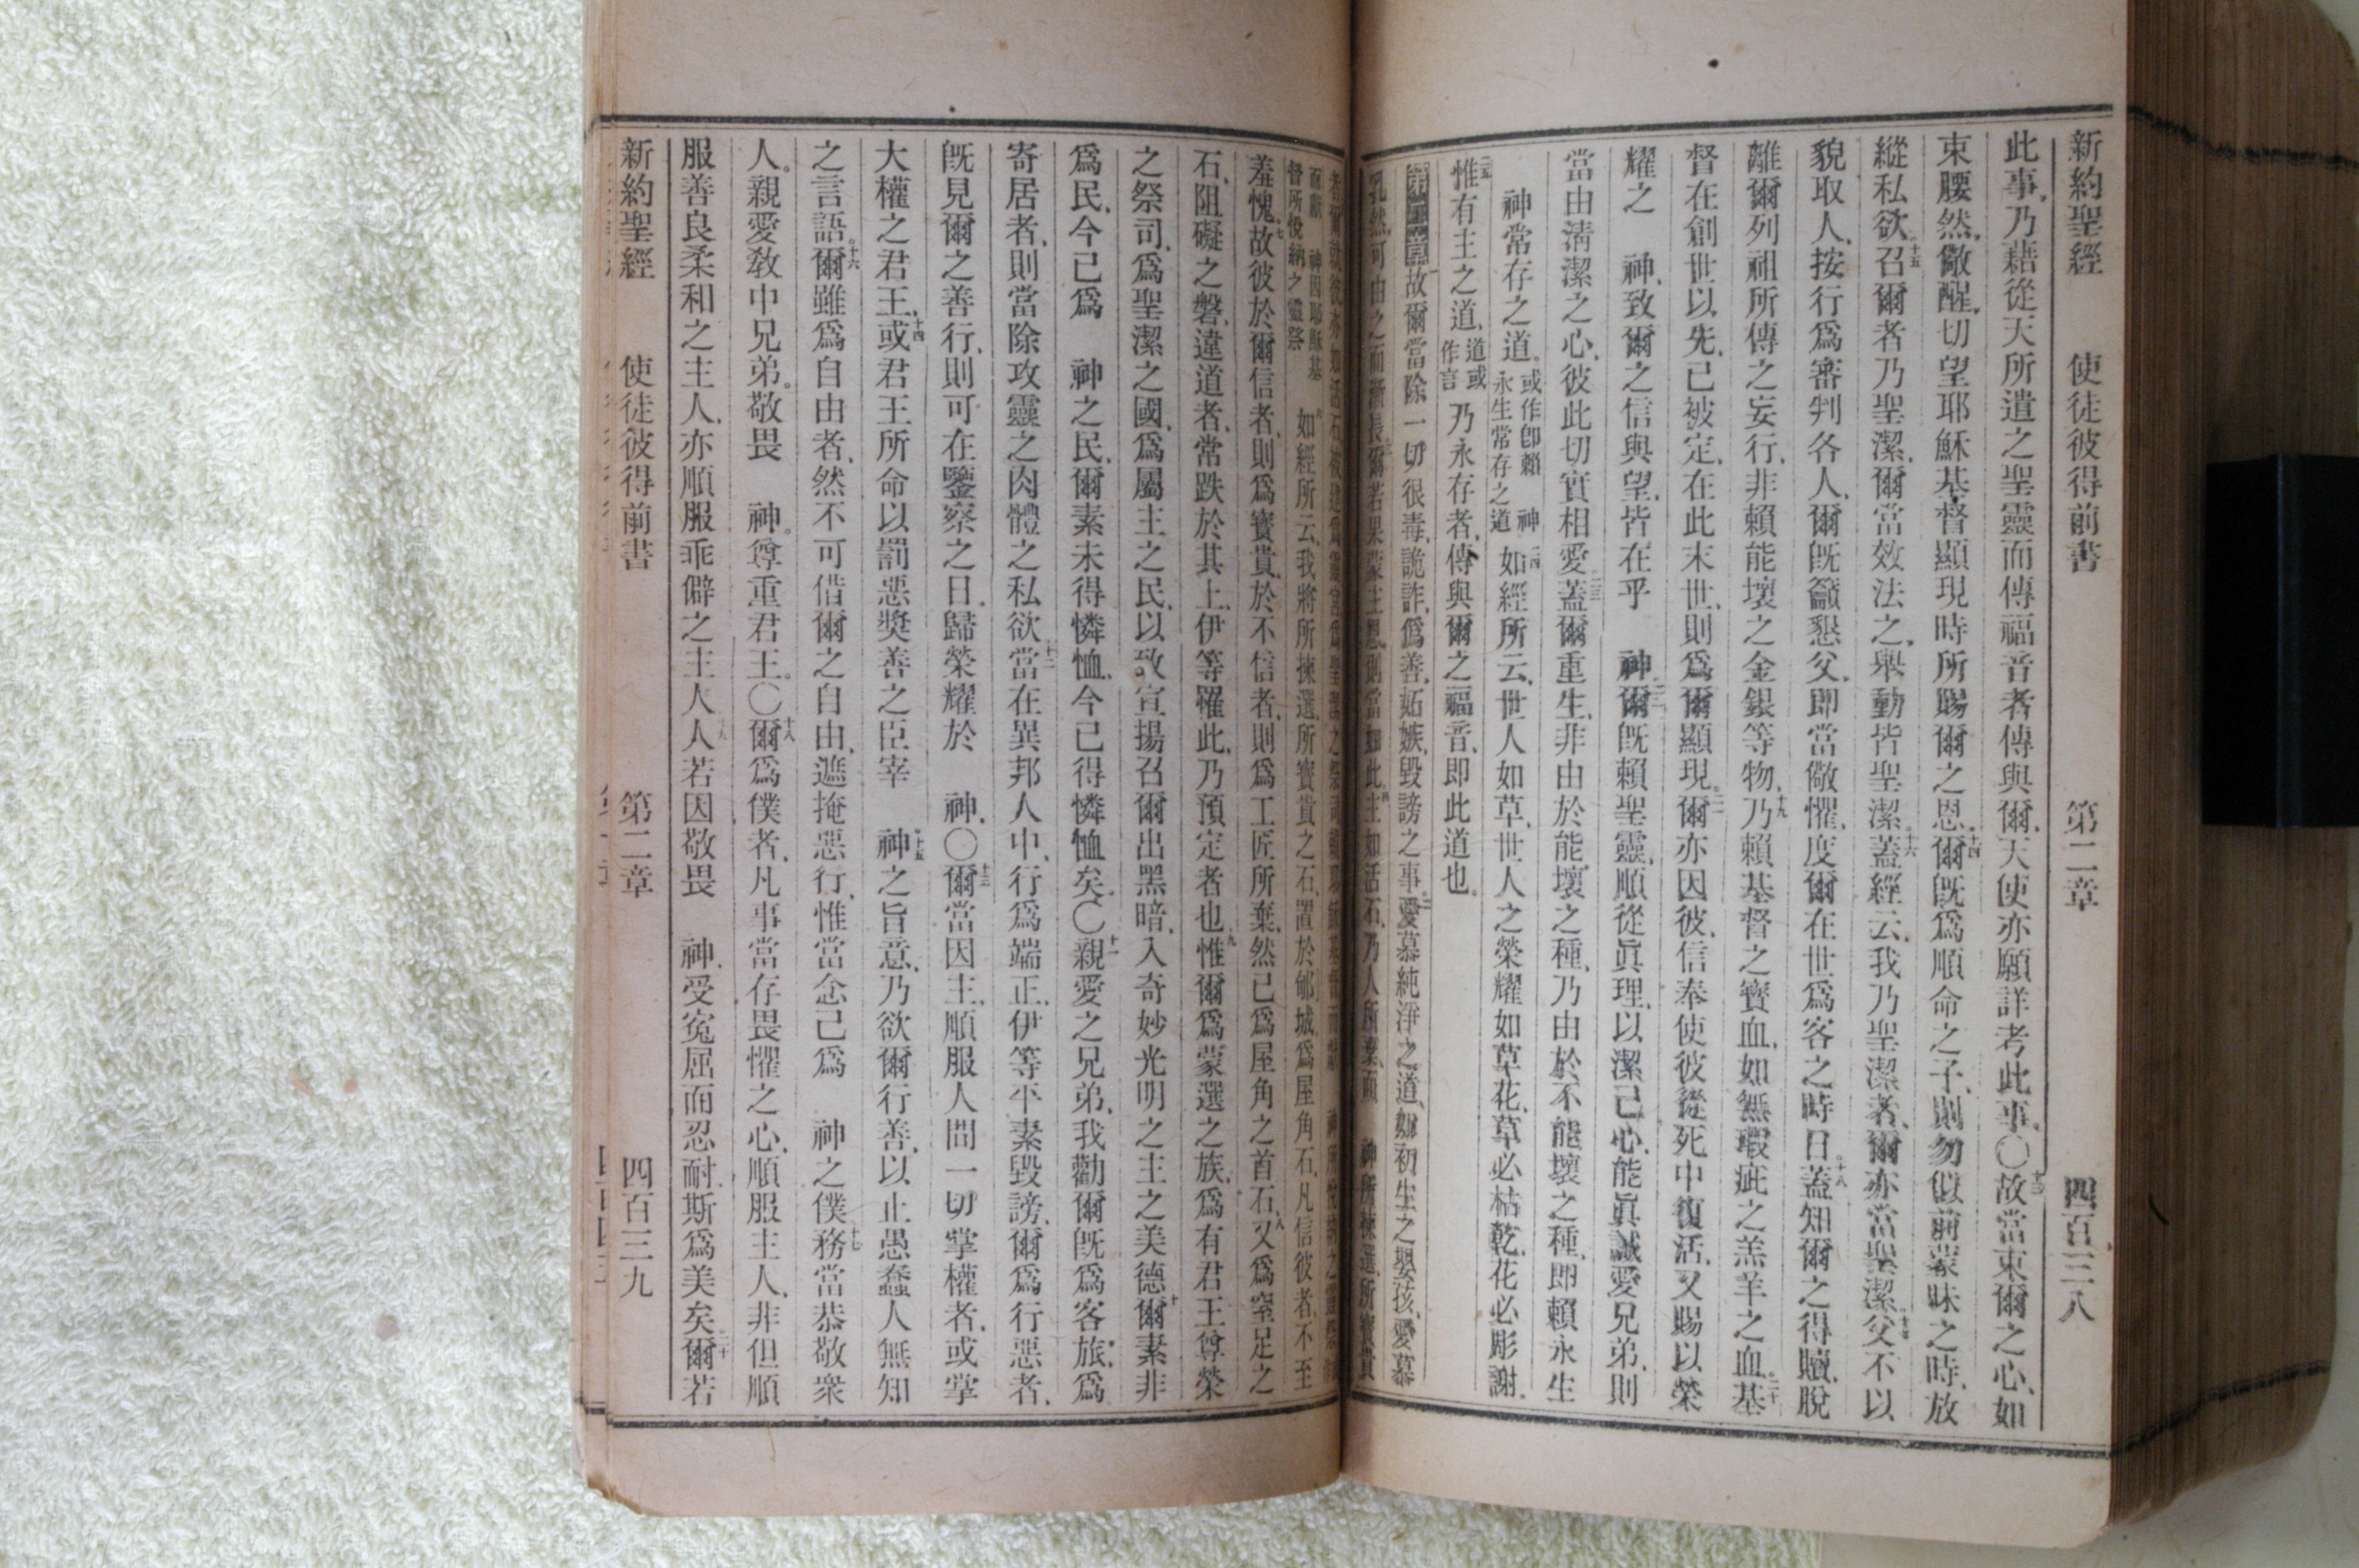 新約聖經 使徒彼得前書 第二章 四百三八
此事、乃藉從天所遣之聖靈而傳福音者傳與爾、天使亦願詳考此事。〇十三故當束爾之心、如
束腰然、儆醒、切望耶穌基督顯現時所賜爾之恩。十四爾旣爲順命之子、則勿似前蒙昧之時、放
縱私欲。十五召爾者乃聖潔、爾當效法之、舉動皆聖潔。十六蓋經云、我乃聖潔者、爾亦當聖潔。十七父不以
貌取人、按行爲審判各人、爾旣籲懇父、即當儆懼、度爾在世爲客之時日。十八蓋知爾之得贖、脫
離爾列祖所傳之妄行、非賴能壞之金銀等物、十九乃賴基督之寶血、如無瑕疵之羔羊之血。二十基
督在創世以先、已被定、在此末世、則爲爾顯現。二一爾亦因彼、信奉使彼從死中復活、又賜以榮
耀之 神、致爾之信與望、皆在乎 神。二二爾旣賴聖靈、順從眞理、以潔己心、能眞誠愛兄弟、則
當由淸潔之心、彼此切實相愛。二三蓋爾重生、非由於能壞之種、乃由於不能壞之種、即賴永生
神常存之道。或作即賴 神永生常存之道 二四如經所云、世人如草、世人之榮耀如草花、草必枯乾、花必彫謝。
二五惟有主之道、道或作言 乃永存者、傳與爾之福音、即此道也。
第二章 一故爾當除一切很毒、詭詐、僞善、妬嫉、毀謗之事。二愛慕純淨之道、如初生之嬰孩、愛慕
乳然、可由之而漸長。三爾若果蒙主恩、則當如此。四主如活石、乃人所棄、而 神所揀選所寶貴
而獻 神因耶穌基督所悅納之靈祭 六如經所云、我將所揀選、所寶貴之石、置於郇城、爲屋角石、凡信彼者、不至
羞愧。七故彼於爾信者、則爲寶貴、於不信者、則爲工匠所棄、然已爲屋角之首石、八又爲窒足之
石、阻礙之磐、違道者、常跌於其上、伊等罹此、乃預定者也。九惟爾爲蒙選之族、爲有君王尊榮
之祭司、爲聖潔之國、爲屬主之民、以致宣揚召爾出黑暗、入奇妙光明之主之美德。十爾素非
爲民、今已爲 神之民、爾素未得憐恤、今已得憐恤矣。〇十一親愛之兄弟、我勸爾旣爲客旅、爲
寄居者、則當除攻靈之肉體之私欲。十二當在異邦人中、行爲端正、伊等平素毀謗、爾爲行惡者、
旣見爾之善行、則可在鑒察之日、歸榮耀於 神。〇十三爾當因主、順服人間一切掌權者、或掌
大權之君王、十四或君王所命以罰惡獎善之臣宰 十五神之旨意、乃欲爾行善、以止愚蠢人無知
之言語。十六爾雖爲自由者、然不可借爾之自由、遮掩惡行、惟當念己爲 神之僕。十七務當恭敬衆
人。親愛敎中兄弟。敬畏 神。尊重君王。〇十八爾爲僕者、凡事當存畏懼之心、順服主人、非但順
服善良柔和之主人、亦順服乖僻之主人。十九人若因敬畏 神、受寃屈而忍耐、斯爲美矣。二十爾若
新約聖經 使徒彼得前書 第二章 四百三九